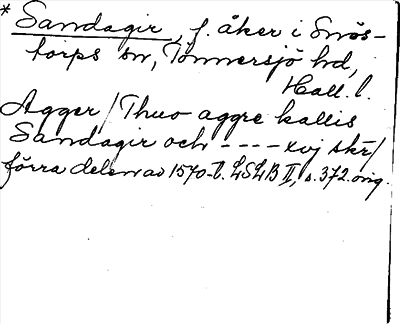 * Sandagir, f. åker i Snös-
torps sn, Tönnersjö hd,
Hall. l.
Agger / Thuo aggre kallis
Sandagir och ---- xvj skr /
förra delen av 1570-t. LSLB II, s. 372. orig.